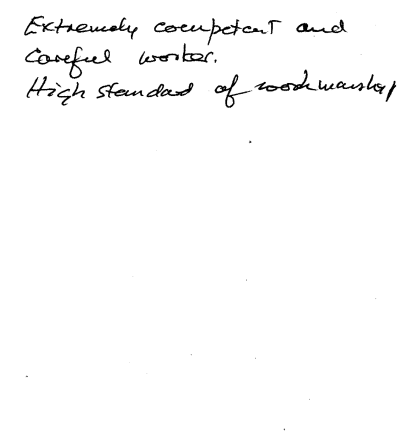 Extremely competent and
Careful worker.
High standard of workmanship